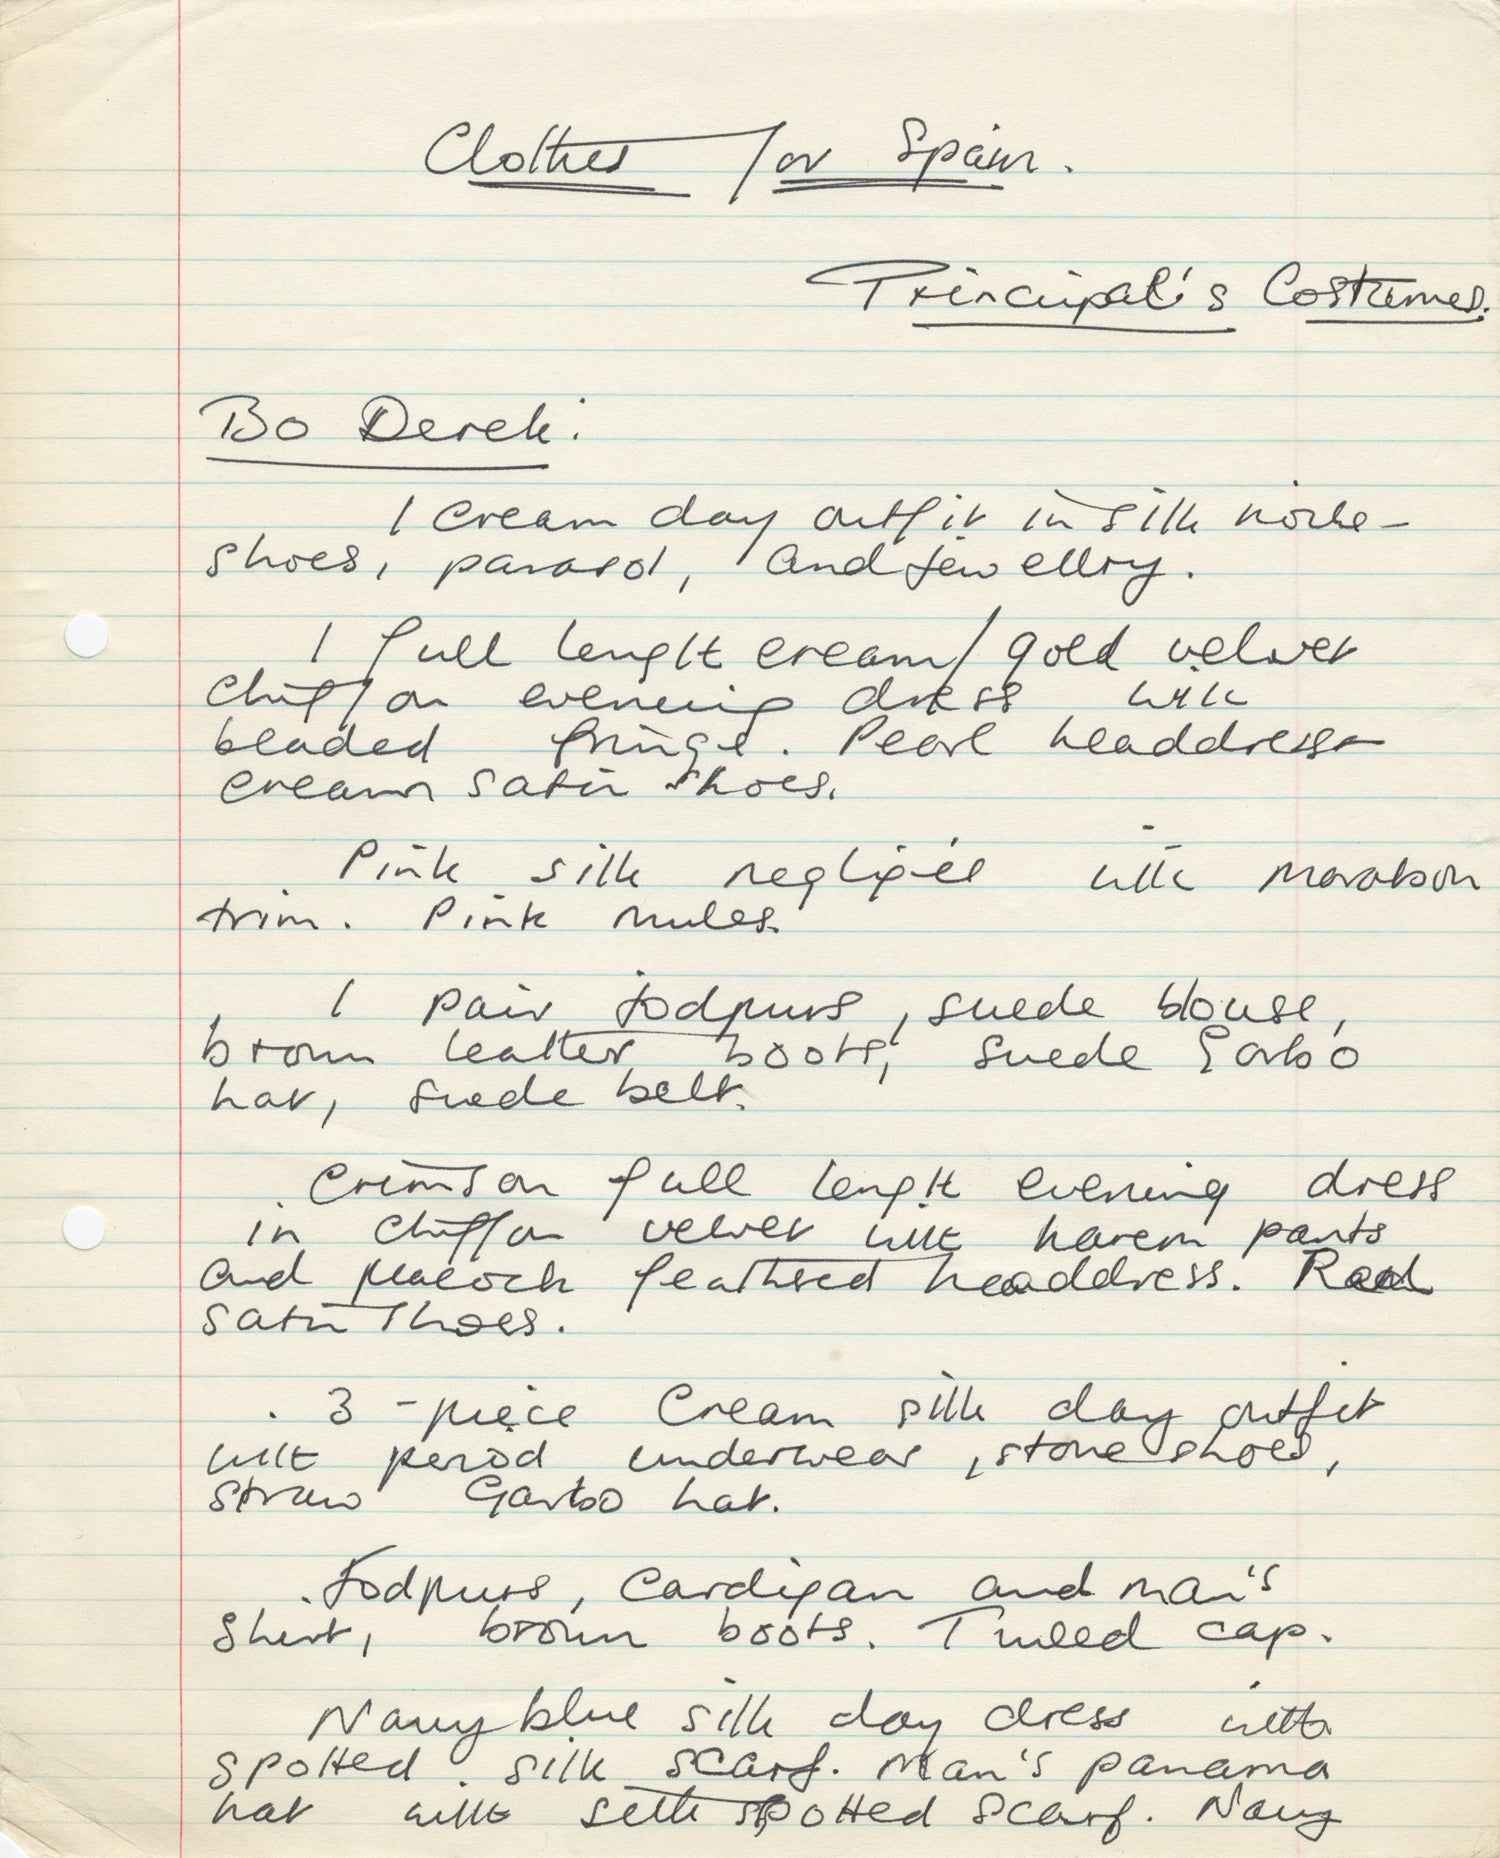 Clothes for Spain.
Principal's Costumes.
Bo Derek:
1 cream day outfit in silk noile -
shoes, parasol, and jewellry.
1 full length cream/gold velvet
chiffon evening dress with
beaded fringe. Pearl headdress -
cream satin shoes.
Pink silk negligée with marabou
trim. Pink mules.
1 pair jodpurs, suede blouse,
brown leather boots, suede Garbo
hat, suede belt.
Crimson full length evening dress
in chiffon velvet with harem pants
and peacock feathered headdress. Red
satin shoes.
. 3-piece cream silk day outfit
with period underwear, stone shoes,
straw Garbo hat.
. Jodpurs, cardigan and man's
shirt, brown boots. Tweed cap.
Navy blue silk day dress with
spotted silk scarf. Man's panama
hat with silk spotted scarf. Navy